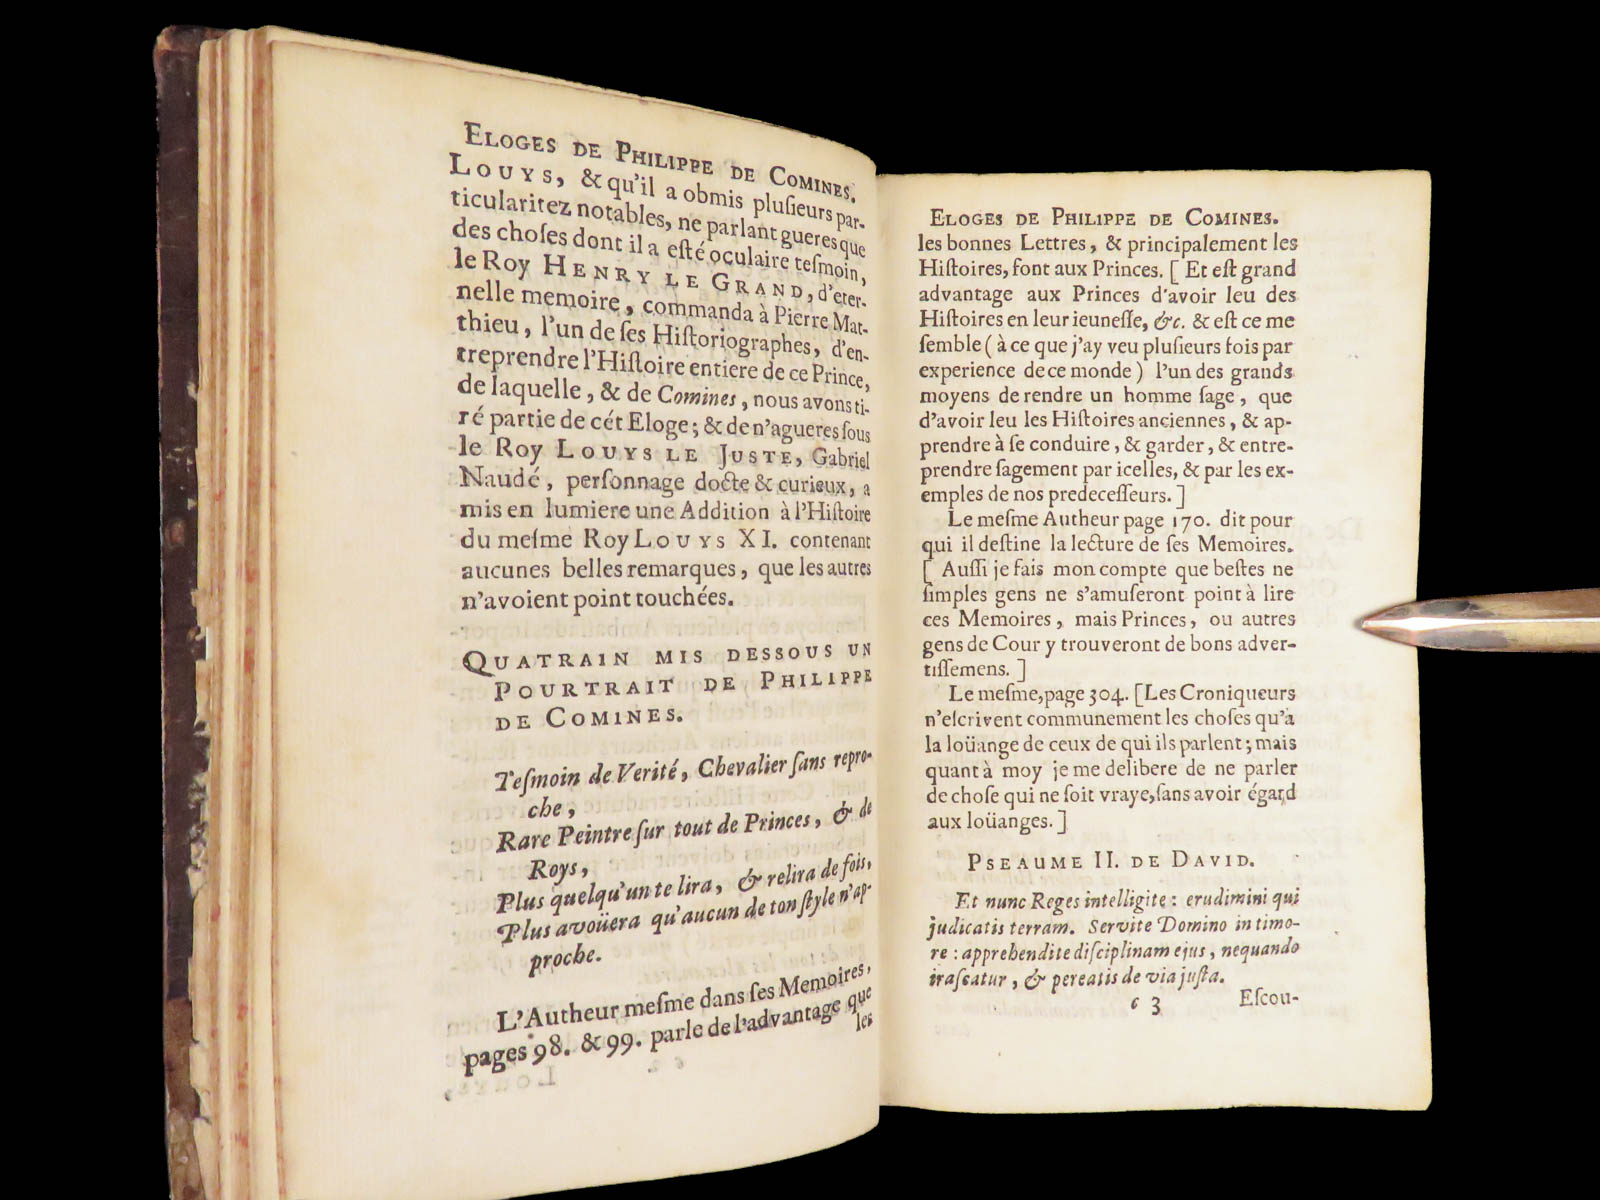 ELOGES DE PHILIPPE DE COMINES.
LOUYS, & qu'il a obmis pluſieurs par-
ticularitez notables, ne parlant gueres que
des choſes dont il a eſté oculaire teſmoin,
le Roy HENRY LE GRAND, d'eter-
nelle memoire, commanda à Pierre Mat-
thieu, l'un de ſes Hiſtoriographes, d'en-
treprendre l'Hiſtoire entiere de ce Prince,
de laquelle, & de Comines, nous avons ti-
ré partie de cét Eloge; & de n'agueres ſous
le Roy LOUYS LE JUSTE, Gabriel
Naudé, perſonnage docte & curieux, a
mis en lumiere une Addition à l'Hiſtoire
du meſme Roy LOUYS XI. contenant
aucunes belles remarques, que les autres
n'avoient point touchées.
QUATRAIN MIS DESSOUS UN
POURTRAIT DE PHILIPPE
DE COMINES.
Teſmoin de Verité, Chevalier ſans repro-
che,
Rare Peintre ſur tout de Princes, & de
Roys,
Plus quelqu'un te lira, & relira de fois,
Plus avoüera qu'aucun de ton ſtyle n'ap-
proche.
L'Autheur meſme dans ſes Memoires,
pages 98. & 99. parle de l'advantage que
les
ELOGES DE PHILIPPE DE COMINES.
les bonnes Lettres, & principalement les
Hiſtoires, font aux Princes. [ Et eſt grand
advantage aux Princes d'avoir leu des
Hiſtoires en leur ieuneſſe, &c. & eſt ce me
ſemble ( à ce que j'ay veu pluſieurs fois par
experience de ce monde ) l'un des grands
moyens de rendre un homme ſage, que
d'avoir leu les Hiſtoires anciennes, & ap-
prendre à ſe conduire, & garder, & entre-
prendre ſagement par icelles, & par les ex-
emples de nos predeceſſeurs. ]
Le meſme Autheur page 170. dit pour
qui il deſtine la lecture de ſes Memoires.
[ Auſſi je fais mon compte que beſtes ne
ſimples gens ne s'amuſeront point à lire
ces Memoires, mais Princes, ou autres
gens de Cour y trouveront de bons adver-
tiſſemens. ]
Le meſme, page 304. [ Les Croniqueurs
n'eſcrivent communement les choſes qu'à
la loüange de ceux de qui ils parlent; mais
quant à moy je me delibere de ne parler
de choſe qui ne ſoit vraye, ſans avoir égard
aux loüanges. ]
PSEAUME II. DE DAVID.
Et nunc Reges intelligite : erudimini qui
judicatis terram. Servite Domino in timo-
re : apprehendite diſciplinam ejus, nequando
iraſcatur, & pereatis de via juſta.
c 3 Eſcou-